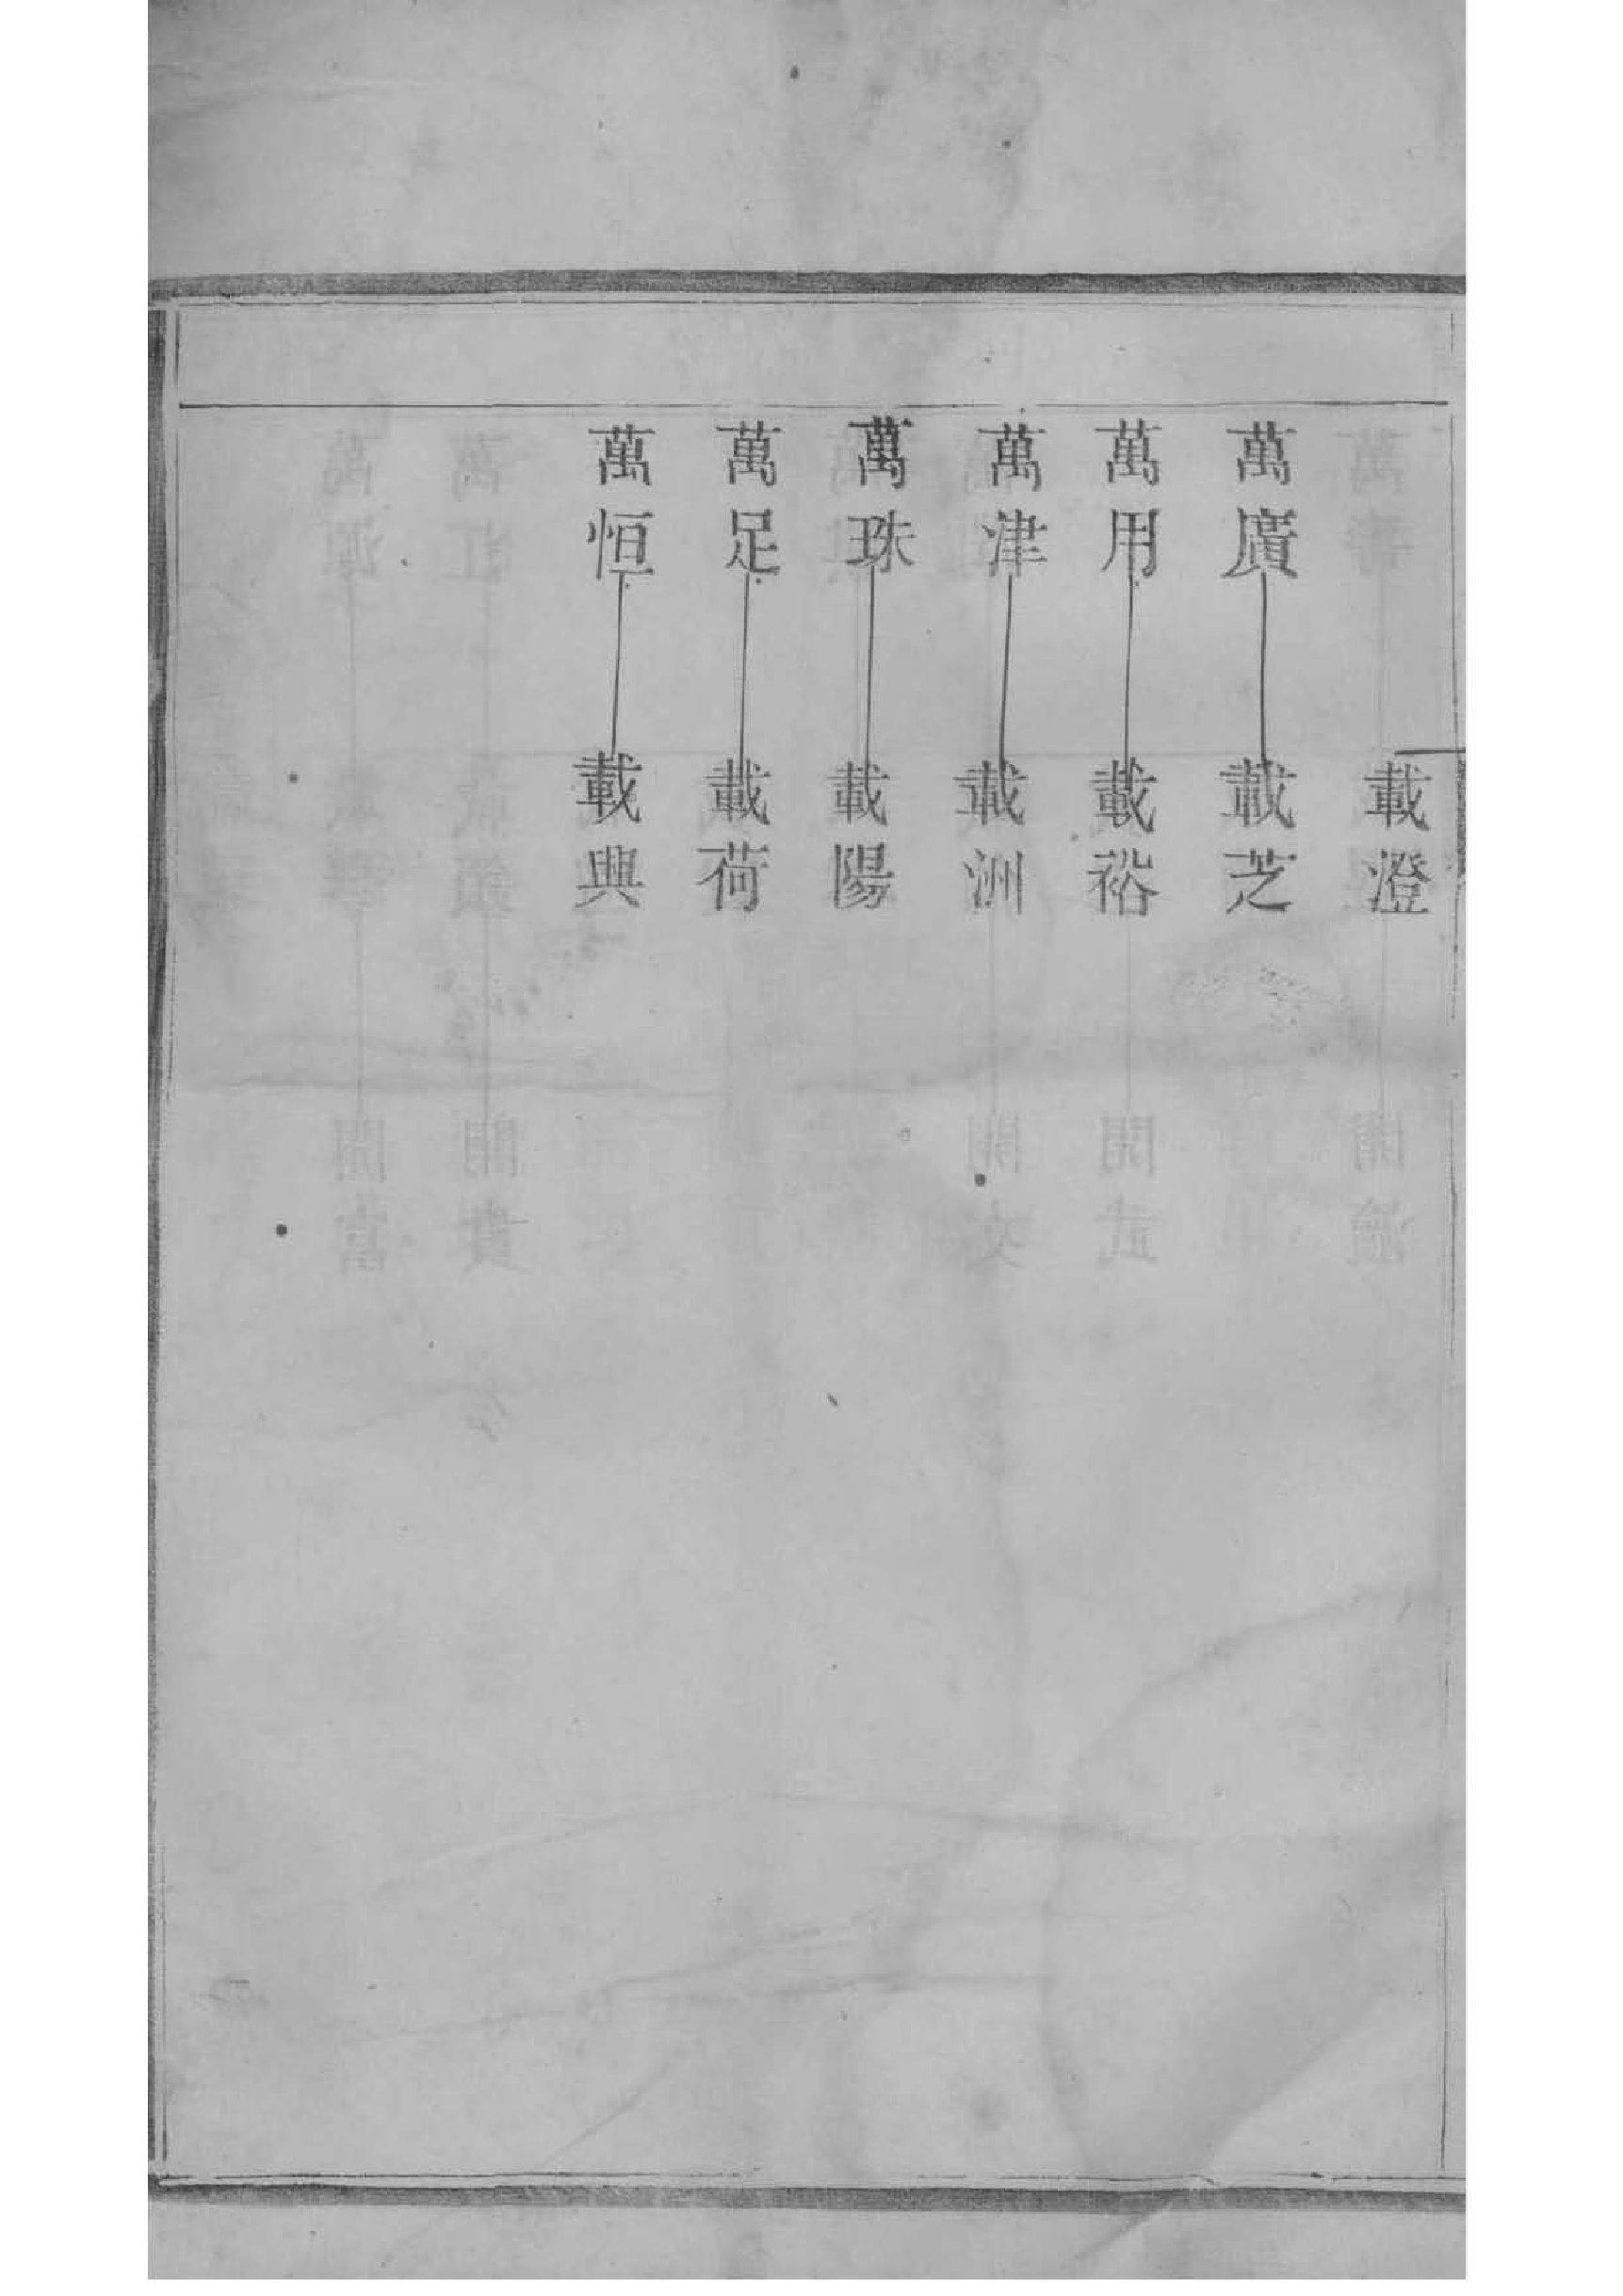 載澄
萬廣 載芝
萬用 載裕
萬津 載洲
萬珠 載陽
萬足 載荷
萬恒 載興